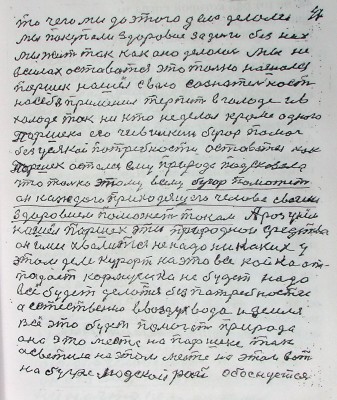 то чего мы до этого дела делали
мы покупали здоровье задачи без них
мы жить так как оно делали мы не
остаются это только
Паршек нашел своего сознательность
на себя принимал терпит в голоде и в
холоде так никто не делал кроме одного
Паршека его Чивилкин бугор помог
без всякой потребности остаться как
Паршек остался ему природа подсказала
что только этому всему бугор поможет
он каждого приходящего человека своим
здоровьем поможет
нашел Паршек эти природные средства
он ими хвалится не надо никаких у
этом деле курорт на это все койка от
падает кормушка не будет надо
всё будет делаться без потребности
а естественно воздух вода и земля
всё это будет помогать природа
она это место на Паршеке так
осветила на этом месте на этом вот
на бугре людской рай обоснуется